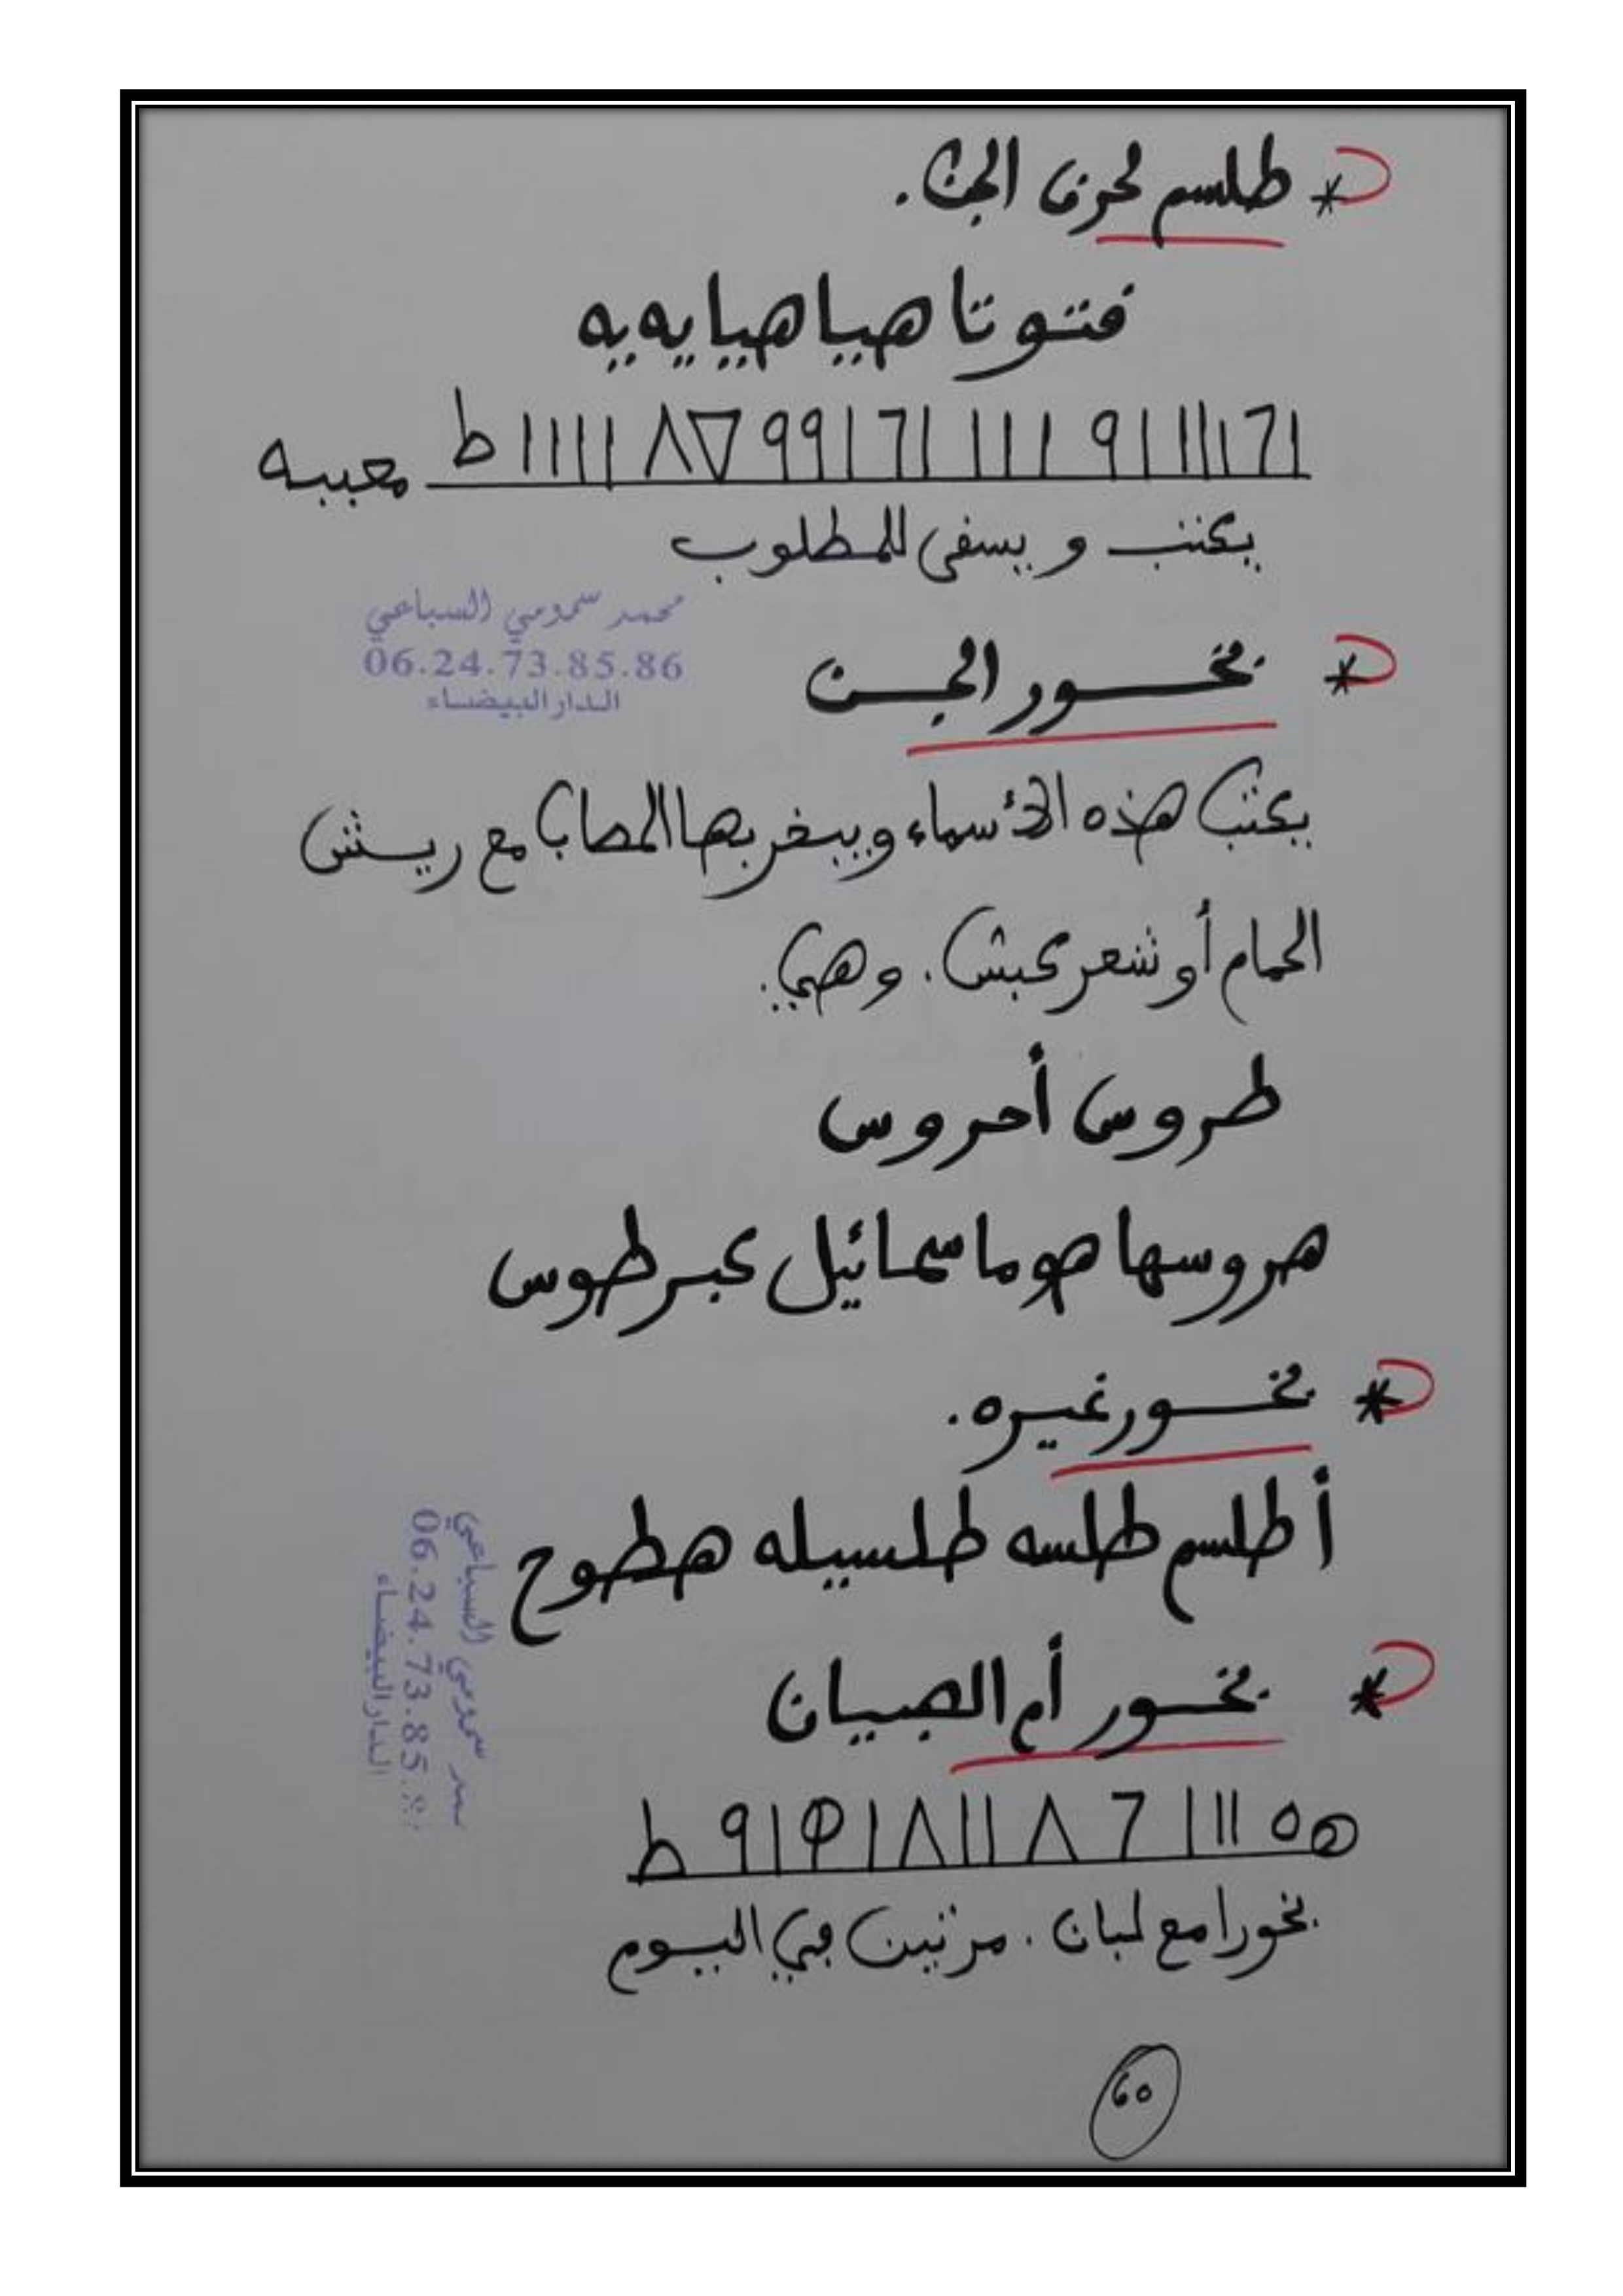 طلسم لحرق الجن.
فتوتا هيا هيا يه يه
ا٦ااااا٩ااااا٦ا٩٩٧٨ااااط معببه
يكتب و يسقى للمطلوب
محمد سمومي السباعي
06.24.73.85.86
الدار البيضاء
بخور الجن
يكتب هذه الأسماء ويبخر بها المصاب مع ريش
الحمام أو شعر كبش. وهي:
طروس أحروس
هروسها هوما سمائيل كبر طوس
بخور غيره.
أطلسم طلسه طلسيله هطوح
السباعي
06.24.73.85
الدار البيضاء
بخور أم الصبيان
بخورا مع لبان. مرتين في اليوم
60